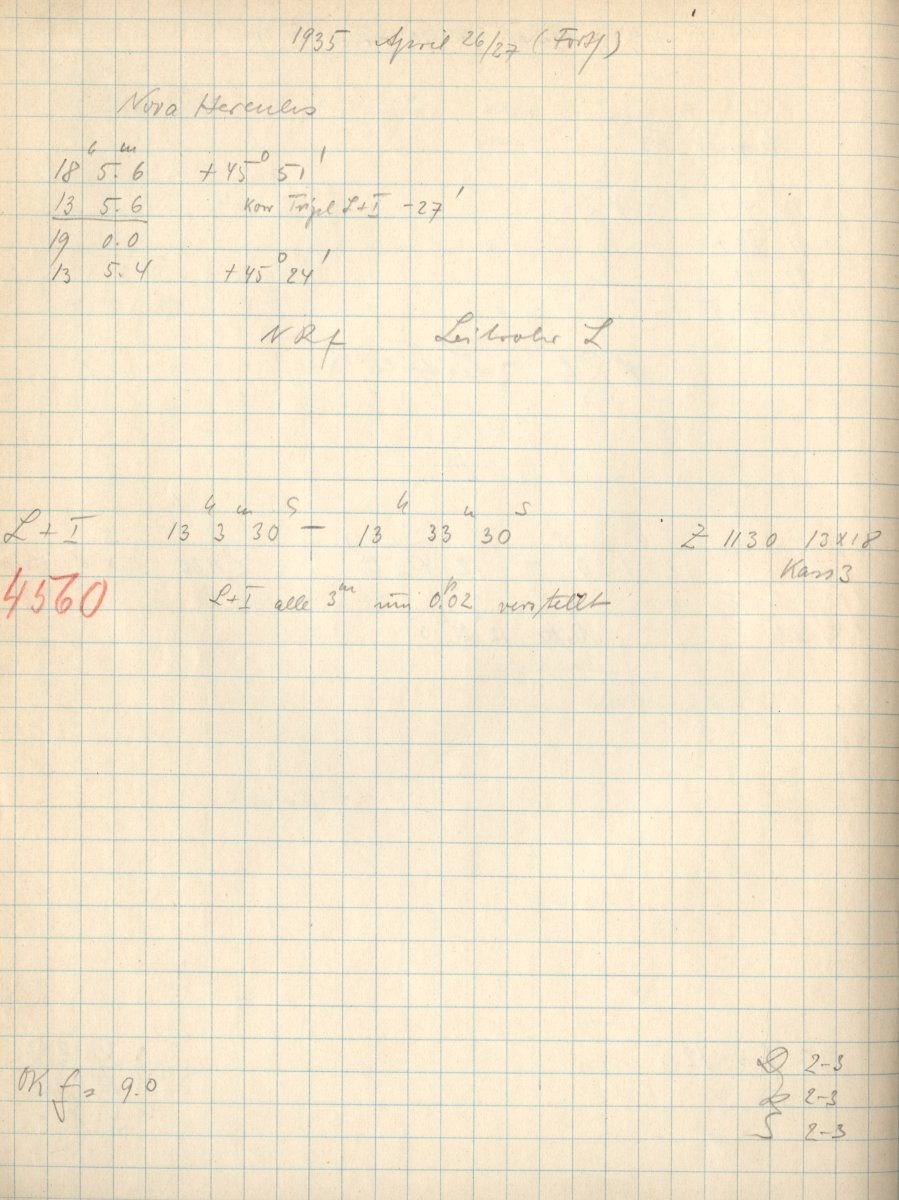 1935 April 26/27 (Forts)
Nova Herculis
18h 5m.6 +45° 51'
13 5.6 Korr Tripl L+I -27'
19 0.0
13 5.4 +45° 24'
NRf Leitrohr L
L+I 13h 3m 30s – 13h 33m 30s Z 1130 13x18
Kass 3
4560 L+I alle 3m um 0.02 verstellt
OK f = 9.0
2-3
2-3
S 2-3